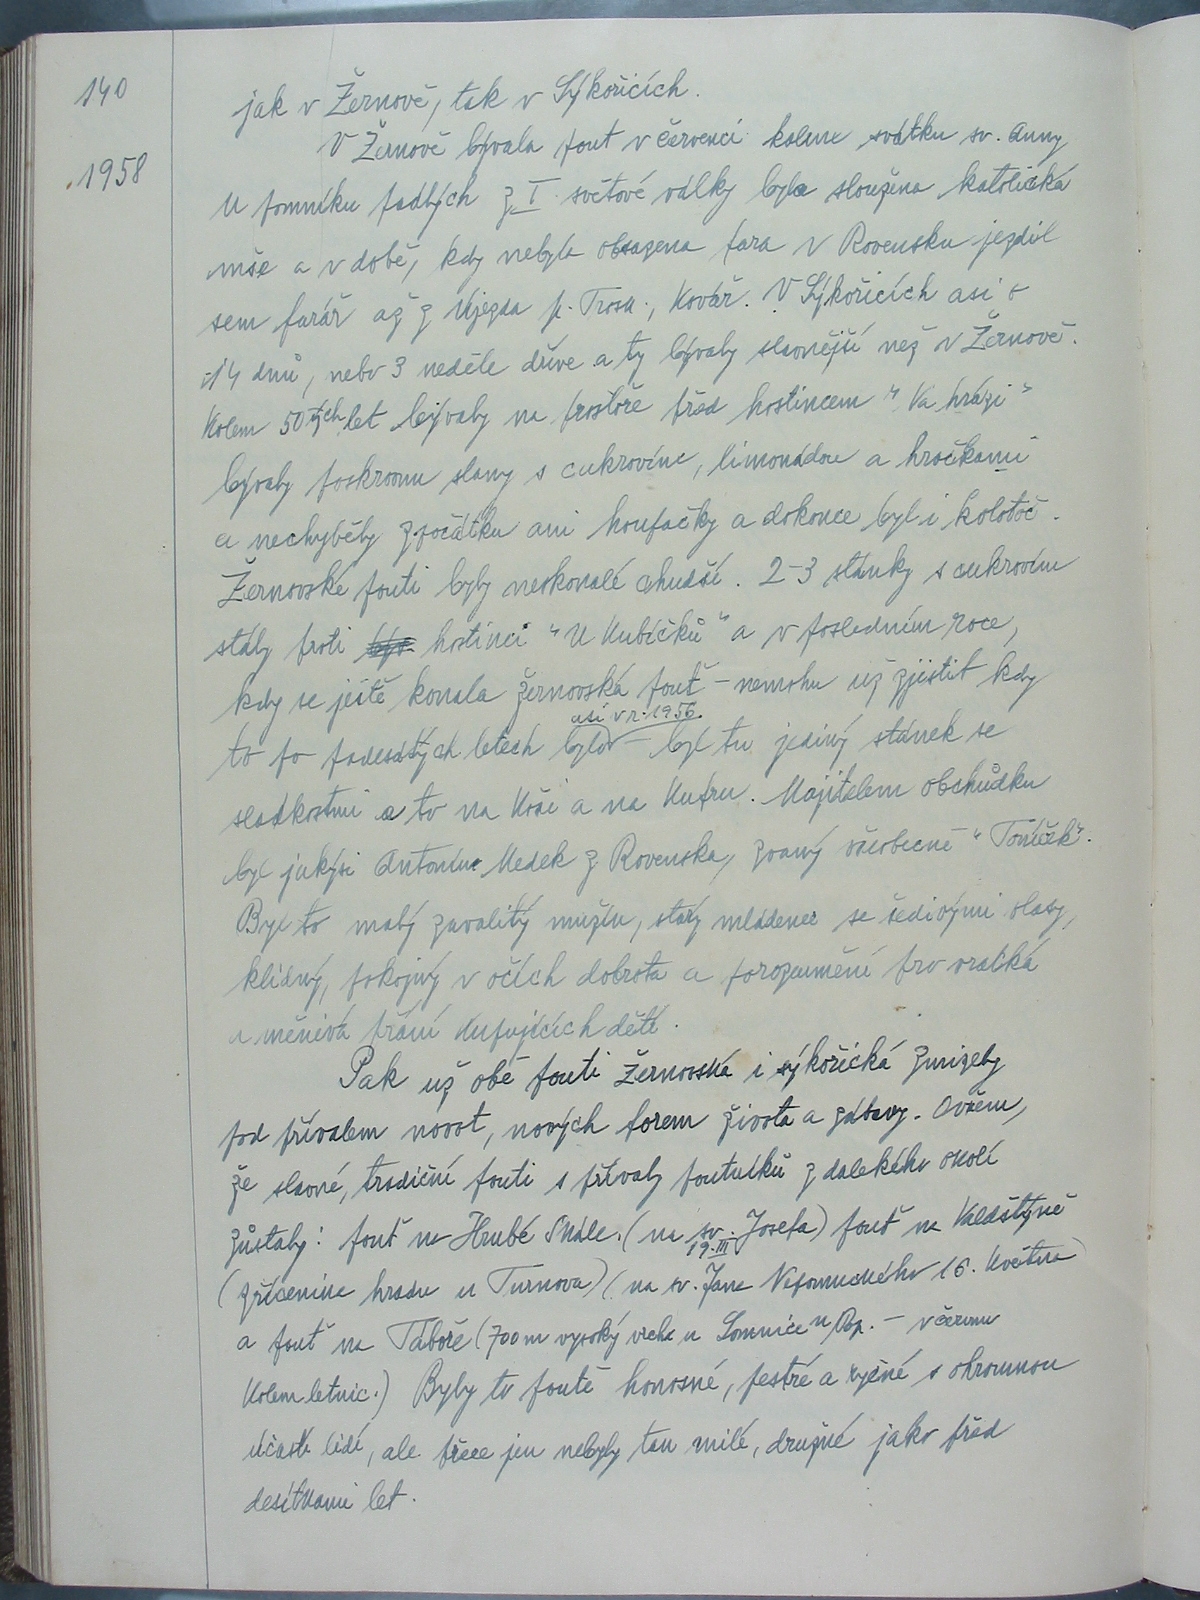 140
jak v Žernově, tak v Sýkořicích.
1958
V Žernově bývala pout v červenci kolem svátku sv. Anny
U pomníku padlých z I. světové války byla sloužena katolická
mše a v době, kdy nebyla obsazena fara v Rovensku jezdil
sem farář až z Újezda p. Trosk., Kovář. V Sýkořicích asi o
14 dnů, nebo 3 neděle dříve a ty bývaly slavnější než v Žernově.
Kolem 50tých let bývaly na prostoře před hostincem "Na hrázi"
bývaly poskrovnu stany s cukrovím, limonádou a hračkami
a nechyběly zpočátku ani houpačky a dokonce byl i kolotoč.
Žernovské pouti byly neskonalé chudší. 2-3 stánky s cukrovím
stály proti hostinci "U Kubíčků" a v posledním roce,
kdy se ještě konala žernovská pouť - nemohu už zjistit kdy
asi v r. 1956.
to po padesátých letech bylo - byl tu jediný stánek se
sladkostmi a to na Koši a na Kufru. Majitelem obchůdku
byl jakýsi Antonín Medek z Rovenska, zvaný všeobecně "Toníček".
Byl to malý zavalitý mužín, starý mládenec se šedivými vlasy,
klidný, pokojný v očích dobrota a porozumění pro vratká
a měnivá přání kupujících dětí.
Pak už obě pouti žernovská i sýkořická zmizely
pod přívalem novot, nových forem života a zábavy. Ovšem,
že slavné, tradiční pouti s přívaly poutníků z dalekého okolí
zůstaly: pouť na Hrubé Skále. (na sv. Josefa) pouť na Valdštýně
19.III.
(zřícenina hradu u Turnova) (na sv. Jana Nepomuckého 16. Května)
a pouť na Táboře (700 m vysoký vrch u Lomnice n Pop. - v červnu
Kolem letnic.) Byly to poutě honosné, pestré a s ohromnou
účastí lidí, ale přece jen nebyly tau milé, družné jako před
desítkami let.